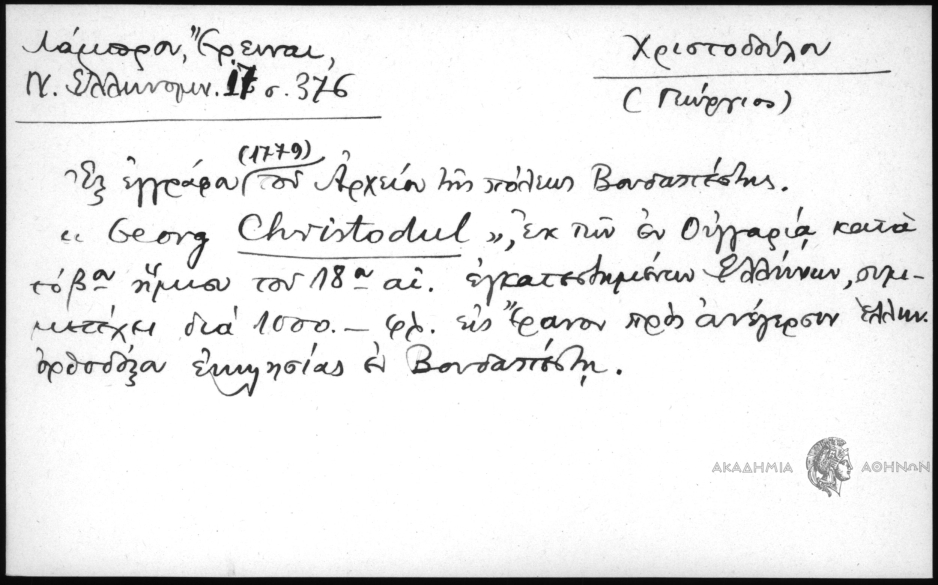 Λάμπρου, Ἔρευναι,
Ν. Ἑλληνομν. 17 σ. 376
Χριστοδούλου
(Γεώργιος)
Ἐξ ἐγγράφου (1779) τοῦ Ἀρχείου τῆς πόλεως Βουδαπέστης.
« Georg Christodul », ἐκ τῶν ἐν Οὑγγαρίᾳ κατὰ
τό βον ἥμισυ τοῦ 18ου αἰ. ἐγκατεστημένων Ἑλλήνων, συμ-
μετέχει διά 1000.— φλ. εἰς ἔρανον πρὸς ἀνέγερσιν ἑλλην.
ὀρθοδόξου ἐκκλησίας ἐν Βουδαπέστῃ.
ΑΚΑΔΗΜΙΑ ΑΘΗΝΩΝ